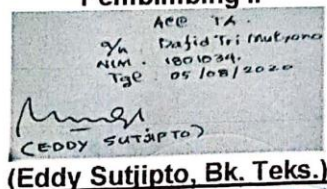 Pembimbing II
ACC TA.
a/n Dafid Tri Mulyono
NIM. 1801034.
Tgl : 05/08/2020
(EDDY SUTJIPTO)
(Eddy Sutjipto, Bk. Teks.)